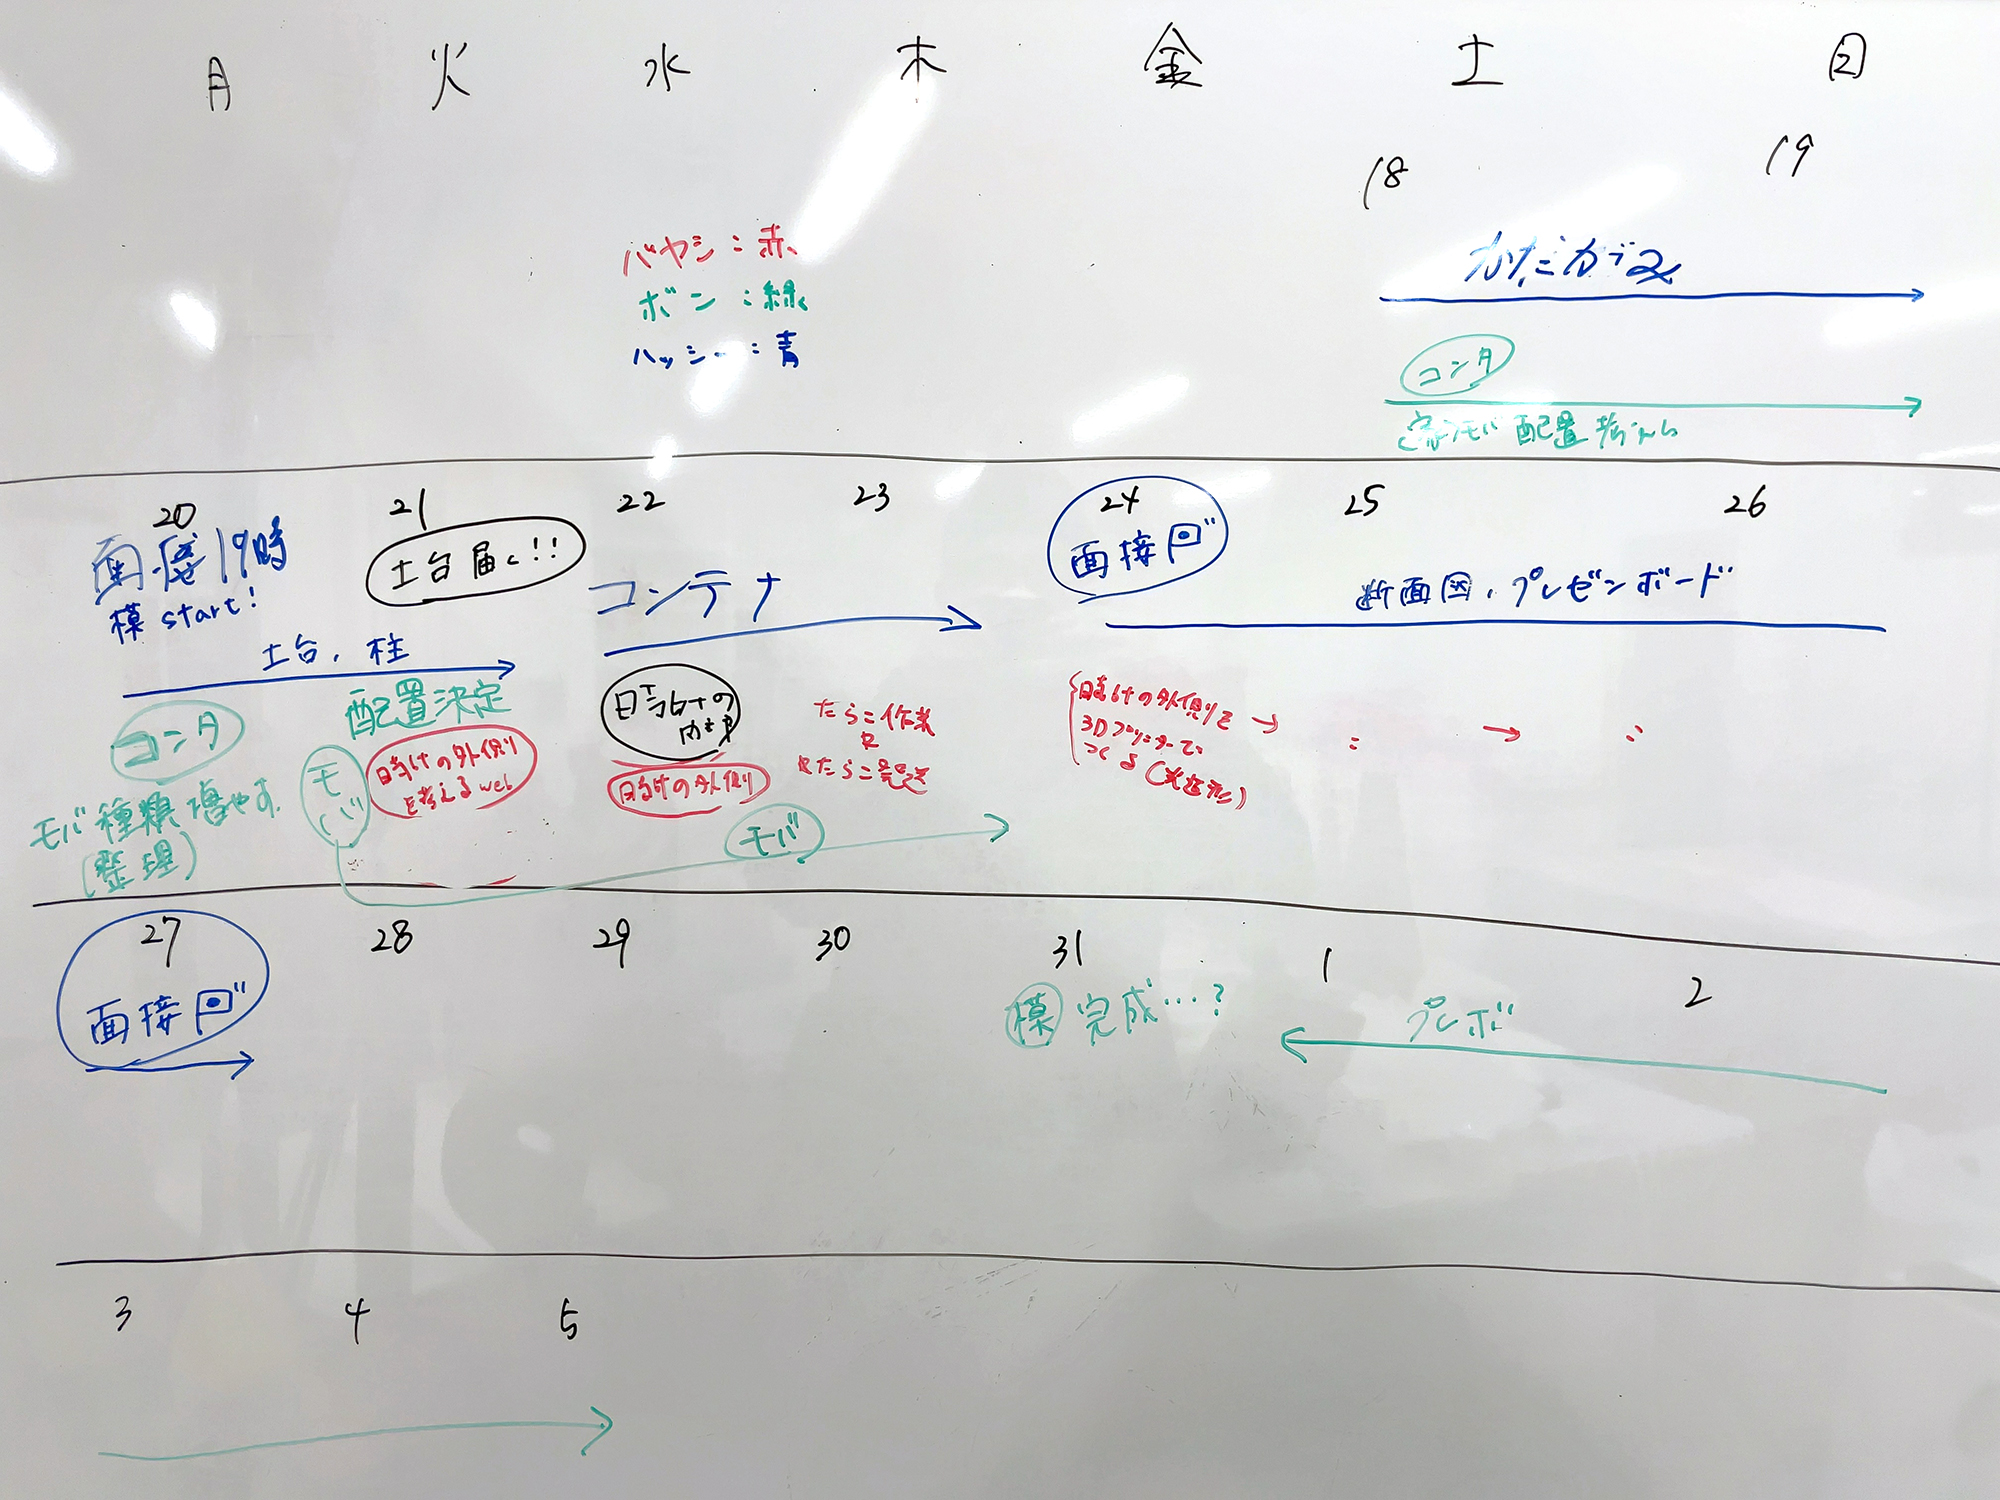 月 火 水 木 金 土 日
18 19
バヤシ：赤
ボン：緑
ハッシー：青
かたがみ
コンタ
モバ配置考える
20 21 22 23 24 25 26
面接19時
模start!
土台届く!!
コンテナ
面接
断面図、プレゼンボード
土台、柱
コンタ
配置決定
モバ
日よけの外側
を考えるweb
日よけの
日よけの外側
たらこ作業
たらこ発送
日よけの外側を →
3Dプリンターで
つくる
→
モバ種類増やす
(整理)
モバ
27 28 29 30 31 1 2
面接
模 完成…?
プレボ
3 4 5